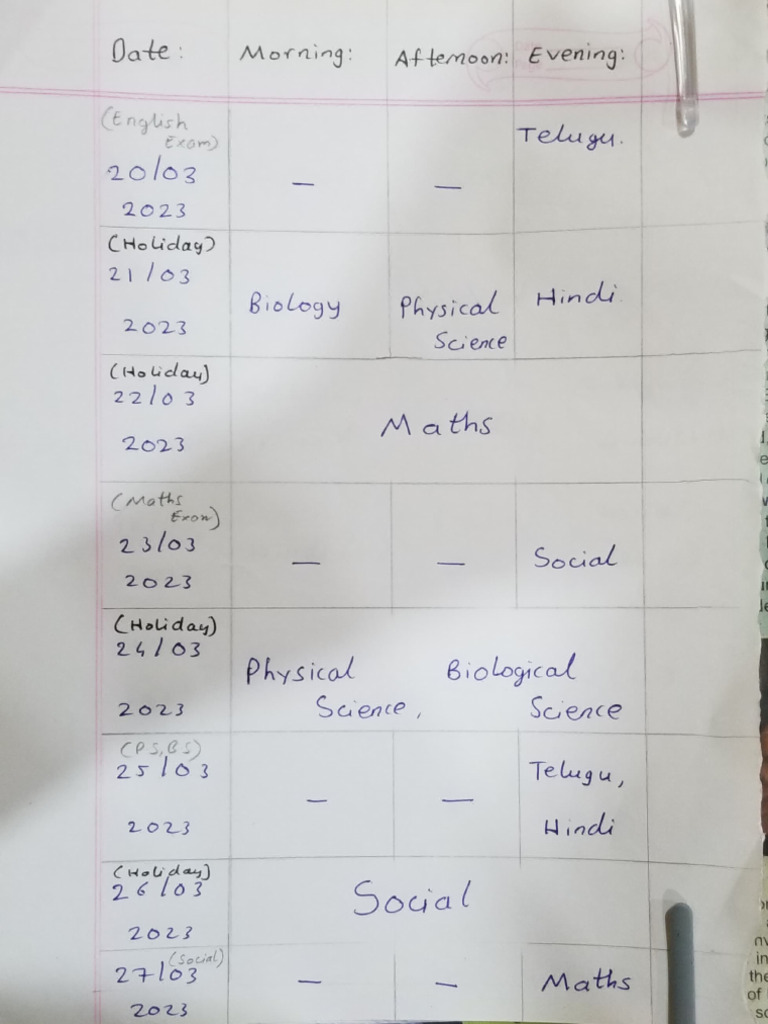 Date: Morning: Afternoon: Evening:
(English
Exam)
20/03 — — Telugu.
2023
(Holiday)
21/03 Biology Physical Hindi
2023 Science
(Holiday)
22/03 Maths
2023
(Maths
Exam)
23/03 — — Social
2023
(Holiday)
24/03 Physical Biological
2023 Science, Science
(PS,BS)
25/03 — — Telugu,
2023 Hindi
(Holiday)
26/03 Social
2023
(Social)
27/03 — — Maths
2023